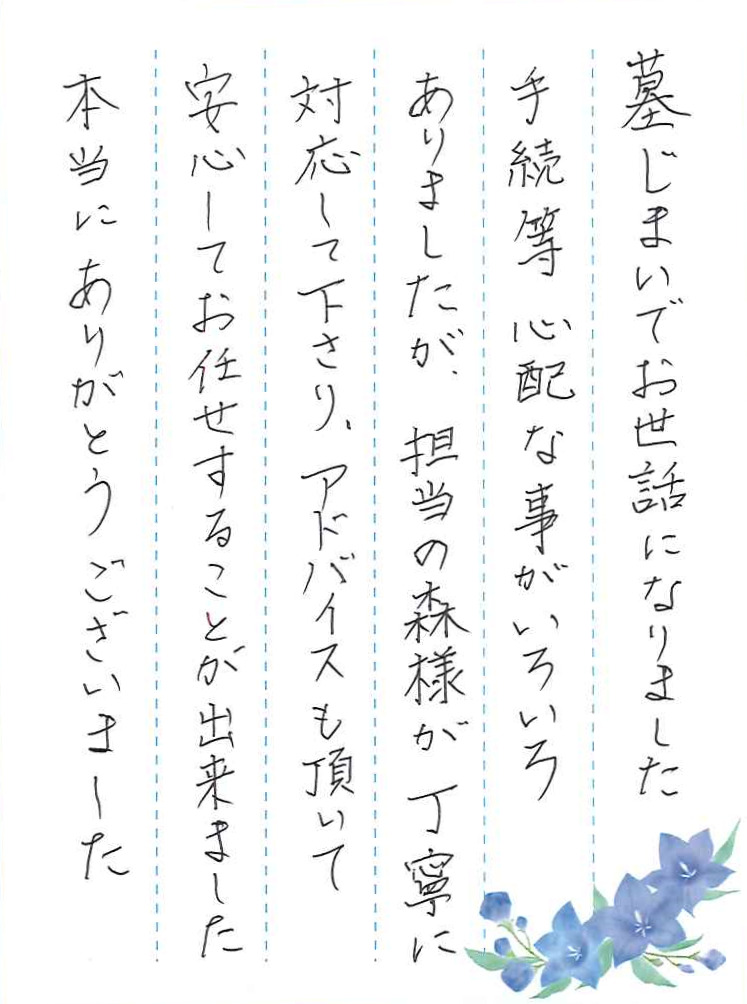 墓じまいでお世話になりました
手続等 心配な事がいろいろ
ありましたが、担当の森様が丁寧に
対応して下さり、アドバイスも頂いて
安心してお任せすることが出来ました
本当にありがとうございました